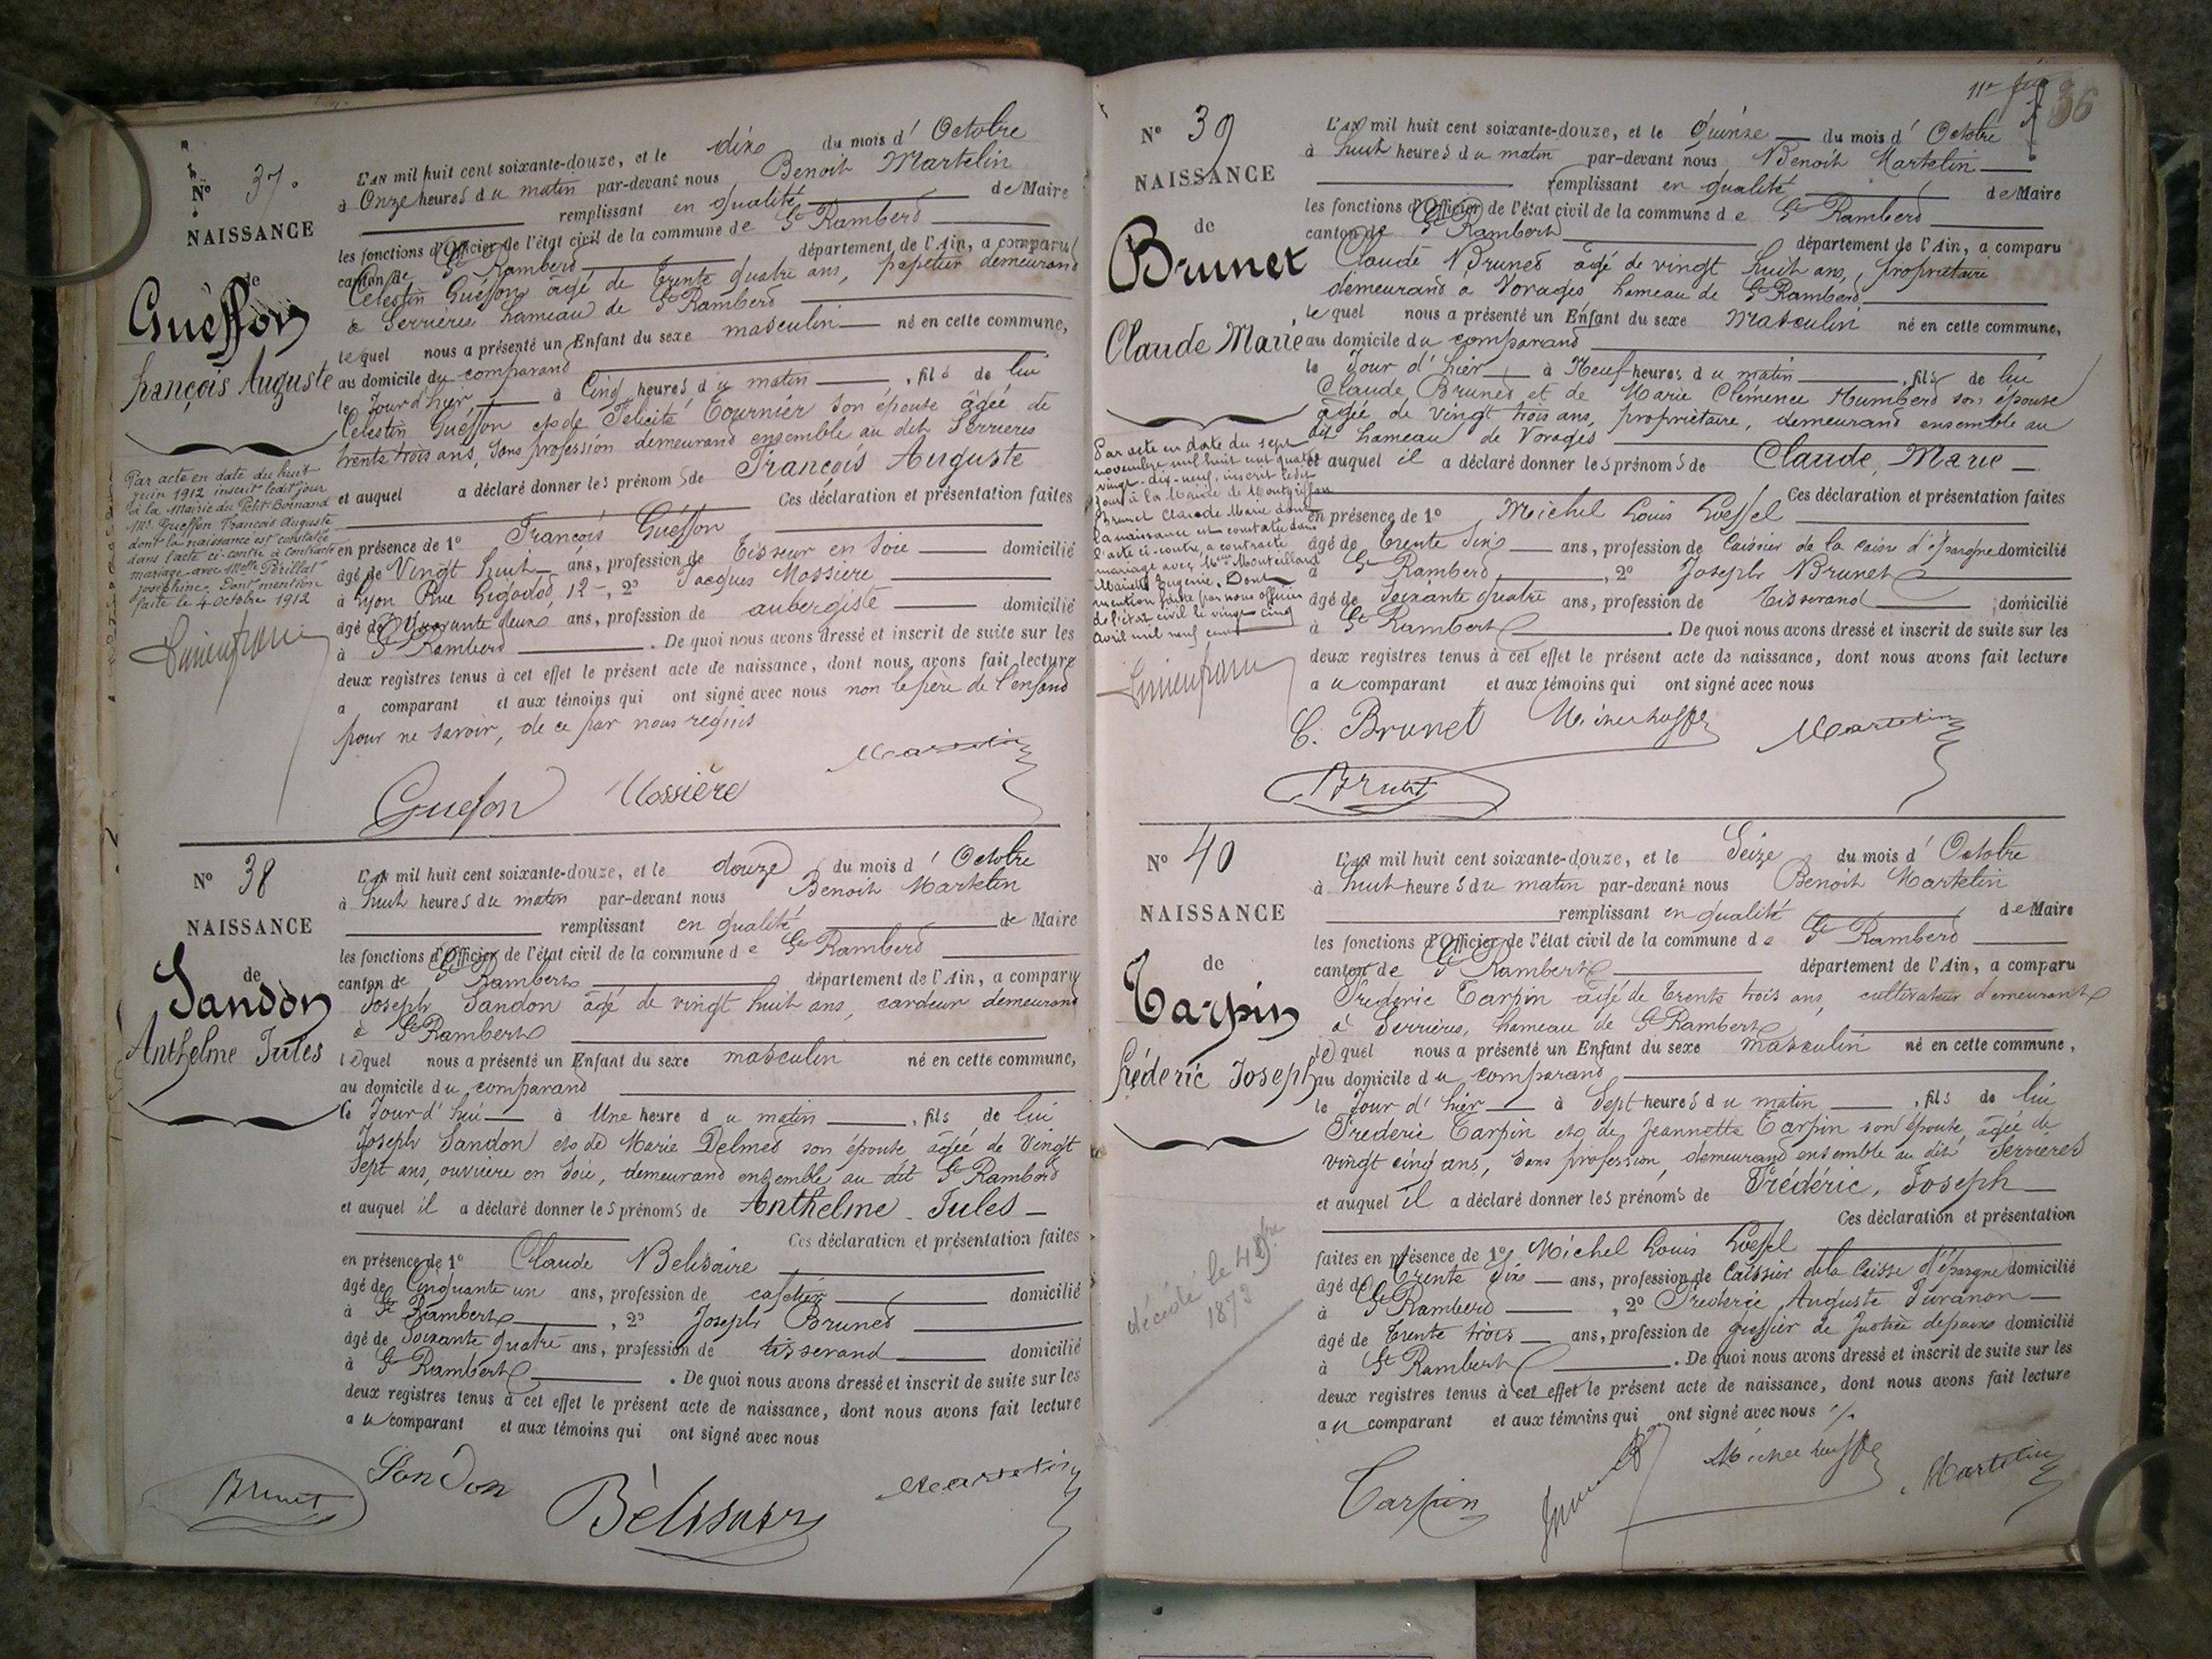 N° 37.
NAISSANCE
de
Guéffon
François Auguste
Par acte en date du huit
juin 1912 inscrit ledit jour
à la Mairie du Petit-Bornand
Mr. Gueffon François Auguste
dont la naissance est constatée
dans l'acte ci-contre a contracté
mariage avec Melle Périllat
Joséphine. Dont mention
faite le 4 octobre 1912
L'AN mil huit cent soixante-douze, et le dix du mois d'Octobre
à Onze heures du matin par-devant nous Benoit Martelin
remplissant en qualité de Maire
les fonctions d'Officier de l'état civil de la commune de St Rambert
canton de St Rambert département de l'Ain, a comparu
Celestin Guéffon âgé de trente quatre ans, papetier demeurand
à Serrières hameau de St Rambert
lequel nous a présenté un Enfant du sexe masculin né en cette commune,
au domicile du comparand
le Jour d'hier à Cinq heures du matin, fils de lui
Celestin Guéffon et de Félicité Tournier son épouse âgée de
trente trois ans, sans profession demeurand ensemble au dit Serrières
et auquel a déclaré donner les prénoms de François Auguste
Ces déclaration et présentation faites
en présence de 1° François Guéffon
âgé de Vingt huit ans, profession de Tisseur en Soie domicilié
à Lyon Rue 12, 2° Jacques Mossiere
âgé de Quarante deux ans, profession de aubergiste domicilié
à St Rambert. De quoi nous avons dressé et inscrit de suite sur les
deux registres tenus à cet effet le présent acte de naissance, dont nous avons fait lecture
a comparant et aux témoins qui ont signé avec nous non le père de l'enfand
pour ne savoir, de ce par nous requis
Guefon Mossière Martelin
N° 38
NAISSANCE
de
Sandon
Anthelme Jules
L'AN mil huit cent soixante-douze, et le douze du mois d'Octobre
à huit heures du matin par-devant nous Benoit Martelin
remplissant en qualité de Maire
les fonctions d'Officier de l'état civil de la commune de St Rambert
canton de St Rambert département de l'Ain, a comparu
Joseph Sandon âgé de vingt huit ans, cardeur demeurand
à St Rambert
lequel nous a présenté un Enfant du sexe masculin né en cette commune,
au domicile du comparand
le Jour d'hui à Une heure du matin, fils de lui
Joseph Sandon et de Marie Delmes son épouse âgée de Vingt
Sept ans, ouvriere en Soie, demeurand ensemble au dit St Rambert
et auquel il a déclaré donner les prénoms de Anthelme Jules
Ces déclaration et présentation faites
en présence de 1° Claude Belisaire
âgé de Cinquante un ans, profession de cafetier domicilié
à St Rambert, 2° Joseph Brunet
âgé de Soixante Quatre ans, profession de tisserand domicilié
à St Rambert. De quoi nous avons dressé et inscrit de suite sur les
deux registres tenus à cet effet le présent acte de naissance, dont nous avons fait lecture
au comparant et aux témoins qui ont signé avec nous
Brunet Sandon Martelin
36
N° 39
NAISSANCE
de
Brunet
Claude Marie
Par acte en date du sept
novembre mil huit cent quatre
vingt-dix-neuf, inscrit ledit
jour à la Mairie de Montgriffon
Brunet Claude Marie dont
la naissance est constatée dans
l'acte ci-contre, a contracté
mariage avec Melle Monteilland
Eugenie. Dont
mention faite par nous officier
de l'état civil le vingt cinq
avril mil neuf cent cinq
L'AN mil huit cent soixante-douze, et le Quinze du mois d'Octobre
à huit heures du matin par-devant nous Benoit Martelin
remplissant en qualité de Maire
les fonctions d'Officier de l'état civil de la commune de St Rambert
canton de St Rambert département de l'Ain, a comparu
Claude Brunet âgé de vingt huit ans, propriétaire
demeurand à Vorages hameau de St Rambert
lequel nous a présenté un Enfant du sexe Masculin né en cette commune,
au domicile du comparand
le Jour d'hier à Neuf heures du matin, fils de lui
Claude Brunet et de Marie Clémence Humbert son épouse
âgée de vingt trois ans, propriétaire, demeurand ensemble au
dit hameau de Vorages
et auquel il a déclaré donner les prénoms de Claude, Marie
Ces déclaration et présentation faites
en présence de 1° Michel Louis Loeffel
âgé de trente dix ans, profession de Caissier de la caisse d'épargne domicilié
à St Rambert, 2° Joseph Brunet
âgé de Soixante Quatre ans, profession de Tisserand domicilié
à St Rambert. De quoi nous avons dressé et inscrit de suite sur les
deux registres tenus à cet effet le présent acte de naissance, dont nous avons fait lecture
au comparant et aux témoins qui ont signé avec nous
C. Brunet Martelin
Brunet
N° 40
NAISSANCE
de
Tarpin
Fréderic Joseph
décédé le 4
1873
L'AN mil huit cent soixante-douze, et le Seize du mois d'Octobre
à huit heures du matin par-devant nous Benoit Martelin
remplissant en qualité de Maire
les fonctions d'Officier de l'état civil de la commune de St Rambert
canton de St Rambert département de l'Ain, a comparu
Frederic Tarpin âgé de trente trois ans, cultivateur demeurant
à Serrières, hameau de St Rambert
lequel nous a présenté un Enfant du sexe masculin né en cette commune,
au domicile du comparand
le Jour d'hier à Sept heures du matin, fils de lui
Frederic Tarpin et de Jeannette Tarpin son épouse, âgée de
vingt cinq ans, sans profession, demeurand ensemble au dit Serrières
et auquel il a déclaré donner les prénoms de Frédéric, Joseph
Ces déclaration et présentation
faites en présence de 1° Michel Louis Loeffel
âgé de trente dix ans, profession de Caissier de la Caisse d'épargne domicilié
à St Rambert, 2° Frederic Auguste Juvanon
âgé de trente trois ans, profession de greffier de Justice de paix domicilié
à St Rambert. De quoi nous avons dressé et inscrit de suite sur les
deux registres tenus à cet effet le présent acte de naissance, dont nous avons fait lecture
au comparant et aux témoins qui ont signé avec nous
Tarpin Martelin